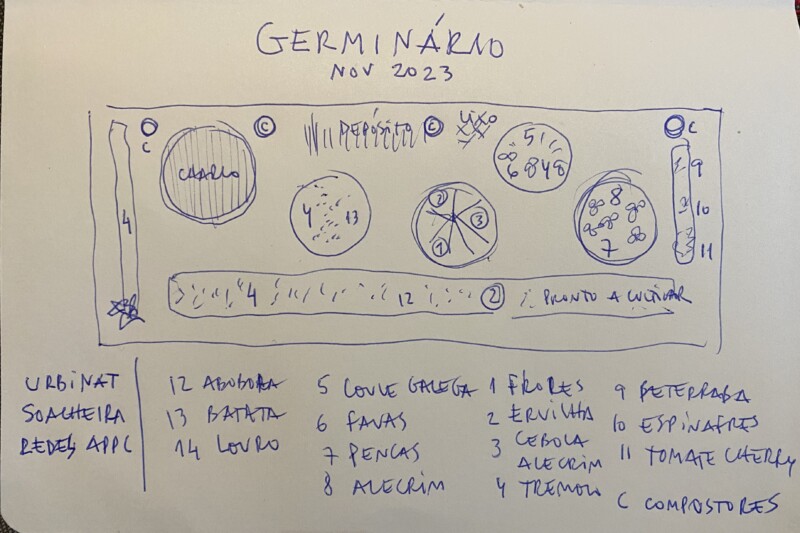 GERMINÁRIO
NOV 2023
C
C
DEPÓSITO
C
LIXO
C
CHARCO
4
5
6 8 4 8
9
10
11
4 13
2
3
1
8
7
4 12 2 PRONTO A CULTIVAR
URBINAT
SOALHEIRA
REDES APPC
12 ABOBORA
13 BATATA
14 LOURO
5 COUVE GALEGA
6 FAVAS
7 PENCAS
8 ALECRIM
1 FLORES
2 ERVILHA
3 CEBOLA
ALECRIM
4 TREMOÇO
9 BETERRABA
10 ESPINAFRES
11 TOMATE CHERRY
C COMPOSTORES